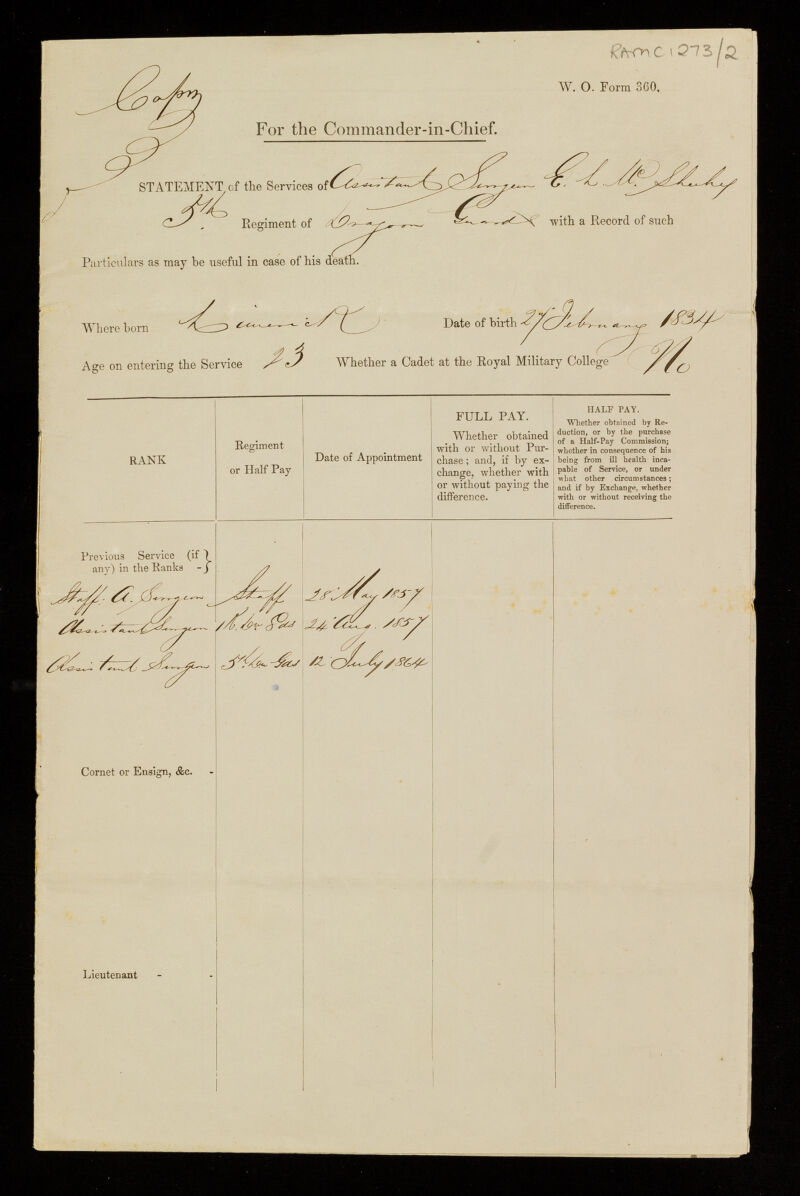 RAMC 1273/2
Copy
W. O. Form 360.
For the Commander-in-Chief.
STATEMENT of the Services of Assistant Surgeon E. L. Mc. Sheehy
5th Regiment of Dragoon Guards with a Record of such
Particulars as may be useful in case of his death.
Where born Limerick Date of birth 27 February 1834
Age on entering the Service 23 Whether a Cadet at the Royal Military College No
RANK
Regiment
or Half Pay
Date of Appointment
FULL PAY.
Whether obtained
with or without Pur-
chase; and, if by ex-
change, whether with
or without paying the
difference.
HALF PAY.
Whether obtained by Re-
duction, or by the purchase
of a Half-Pay Commission;
whether in consequence of his
being from ill health inca-
pable of Service, or under
what other circumstances;
and if by Exchange, whether
with or without receiving the
difference.
Previous Service (if }
any) in the Ranks - }
Staff. A. Surgeon Staff 28 May 1857
Assistant Surgeon Dn Gds 24 Aug. 1857
Assistant Surgeon 5th Dn Gds 12 July 1864
Cornet or Ensign, &c. -
Lieutenant - -